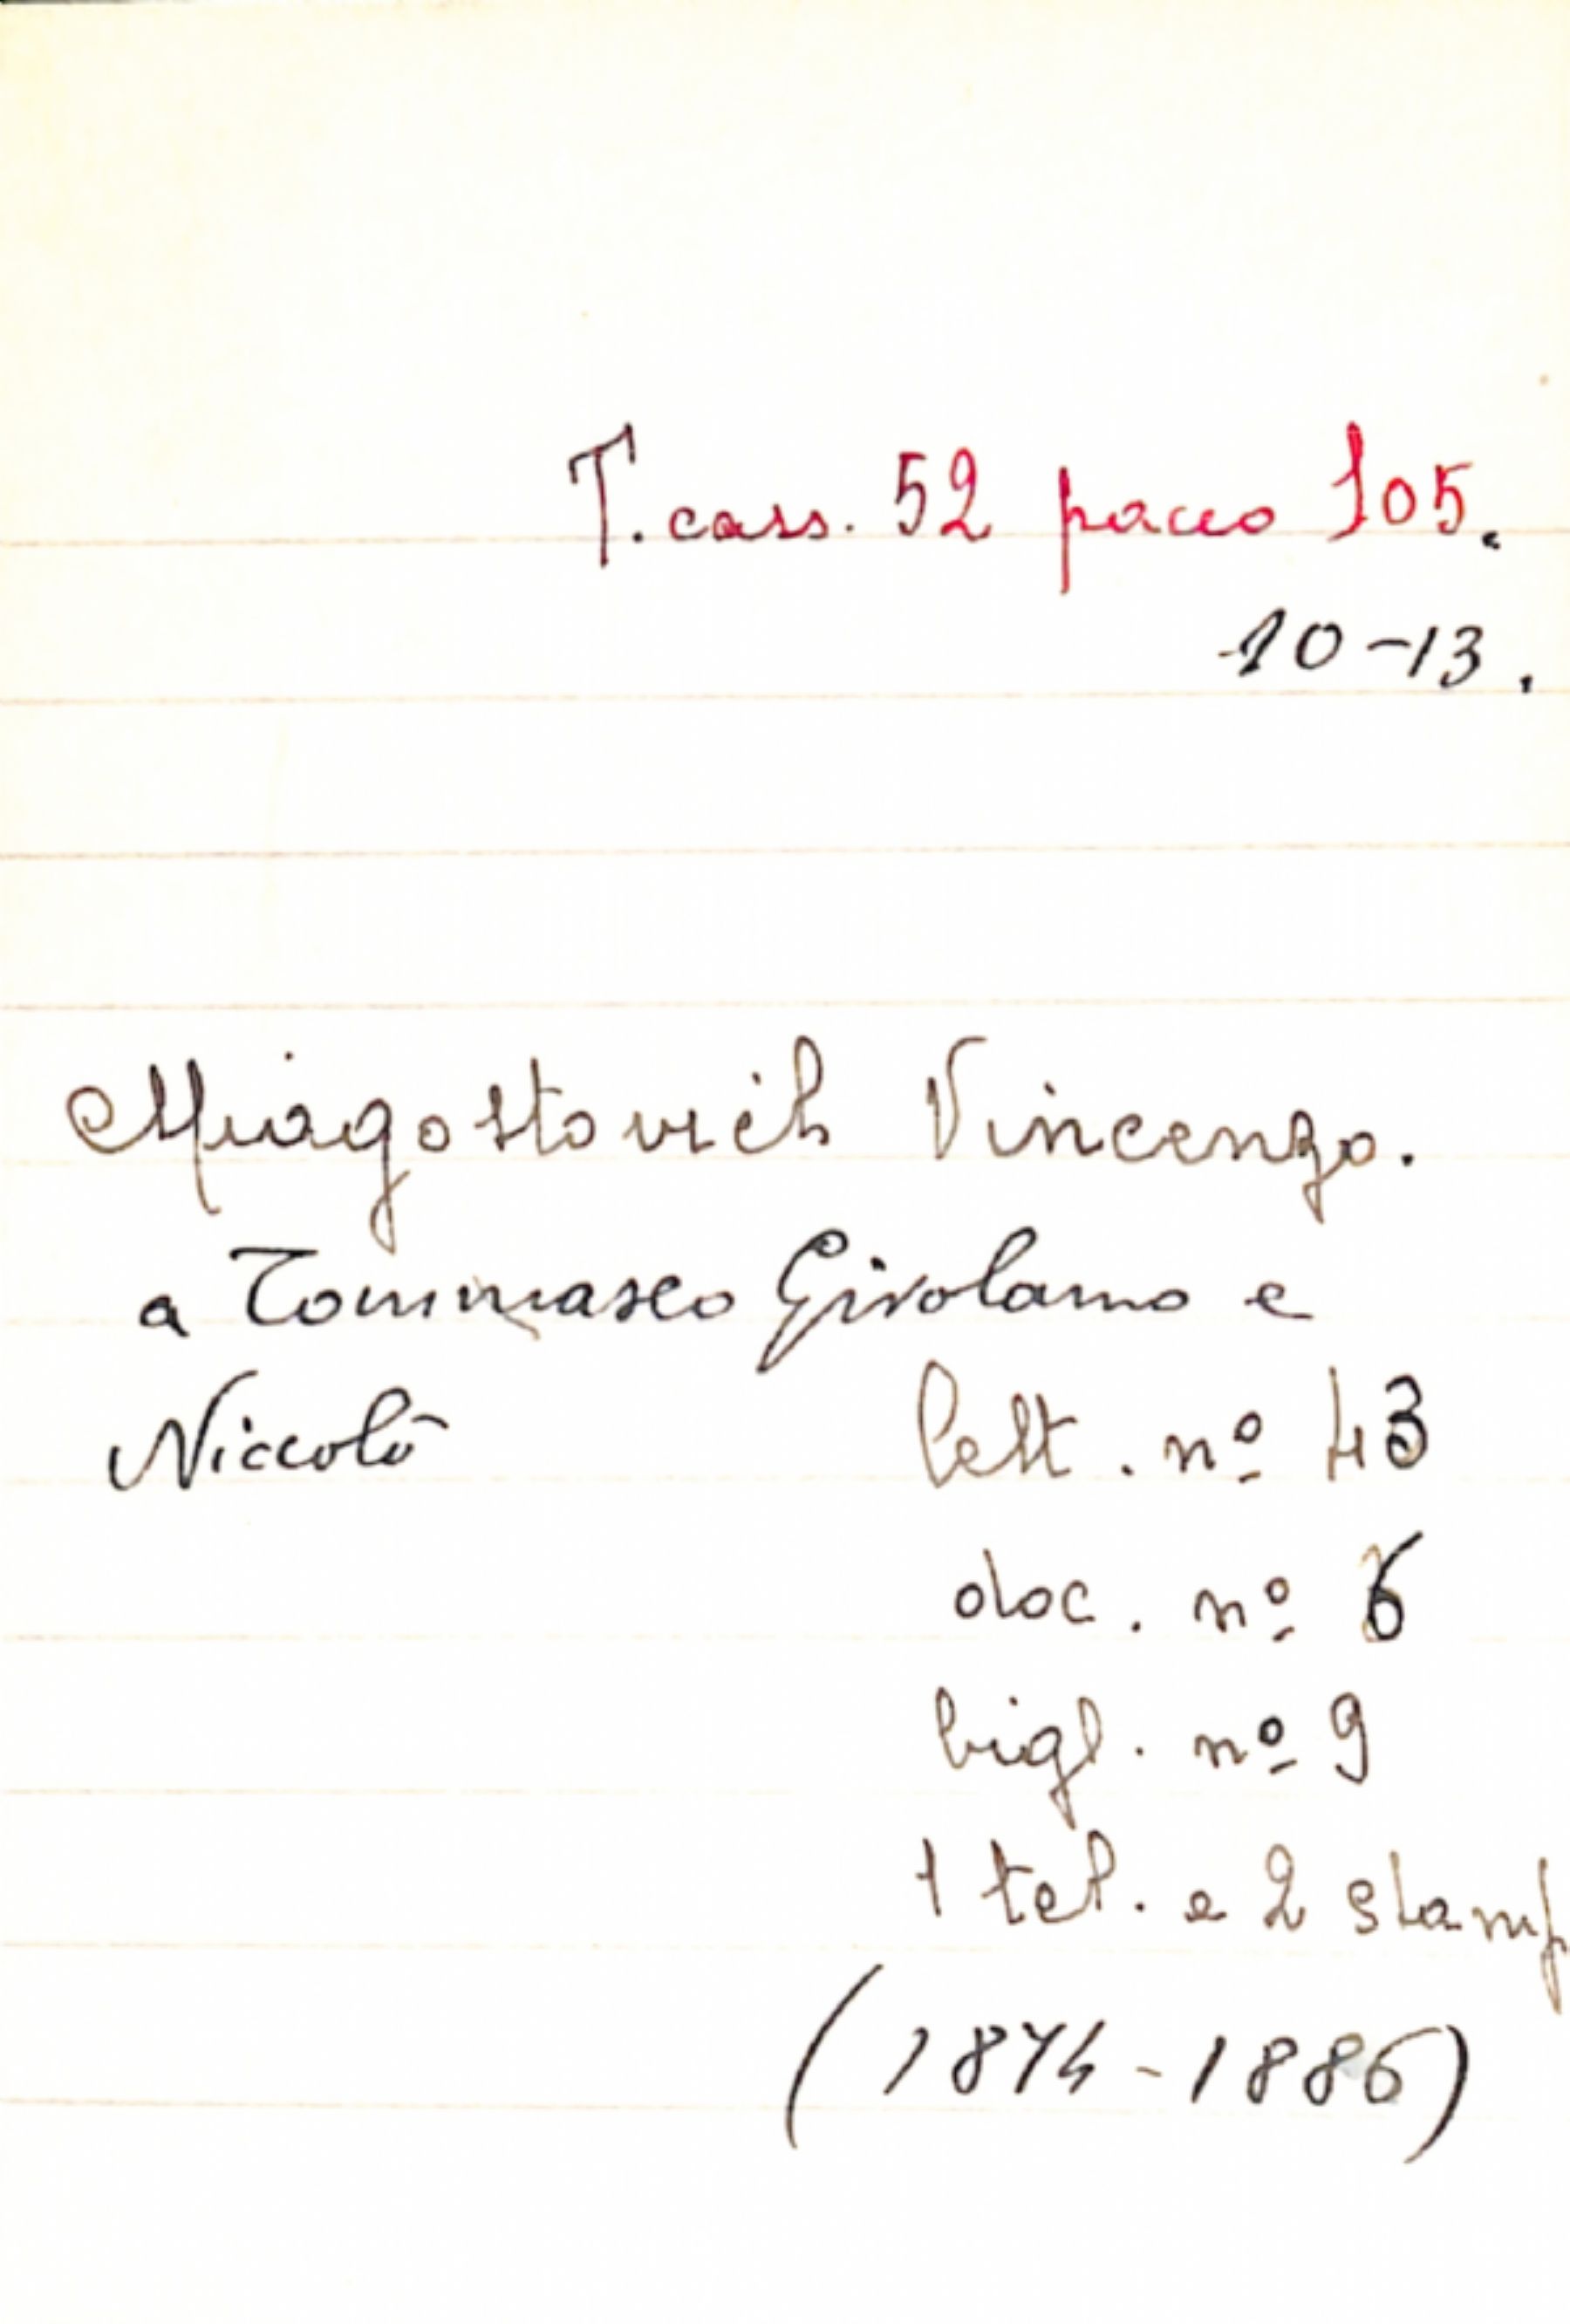 T. cass. 52 pacco 105.
10-13.
Miagostovich Vincenzo.
a Tommaseo Girolamo e
Niccolò
lett. nº 43
doc. nº 6
bigl. nº 9
1 tel. e 2 stamp
(1874-1886)